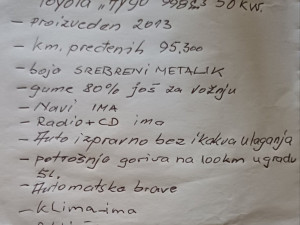 Toyota "Aygo" 998.3 50 kW.
- proizveden 2013
- km. pređenih 95.300
- boja SREBRENI METALIK
- gume 80% još za vožnju
- Navi IMA
- Radio+CD ima
- Auto izpravno bez ikakva ulaganja
- potrošnja goriva na 100km u gradu
5l.
- Automatske brave
- Klima-ima